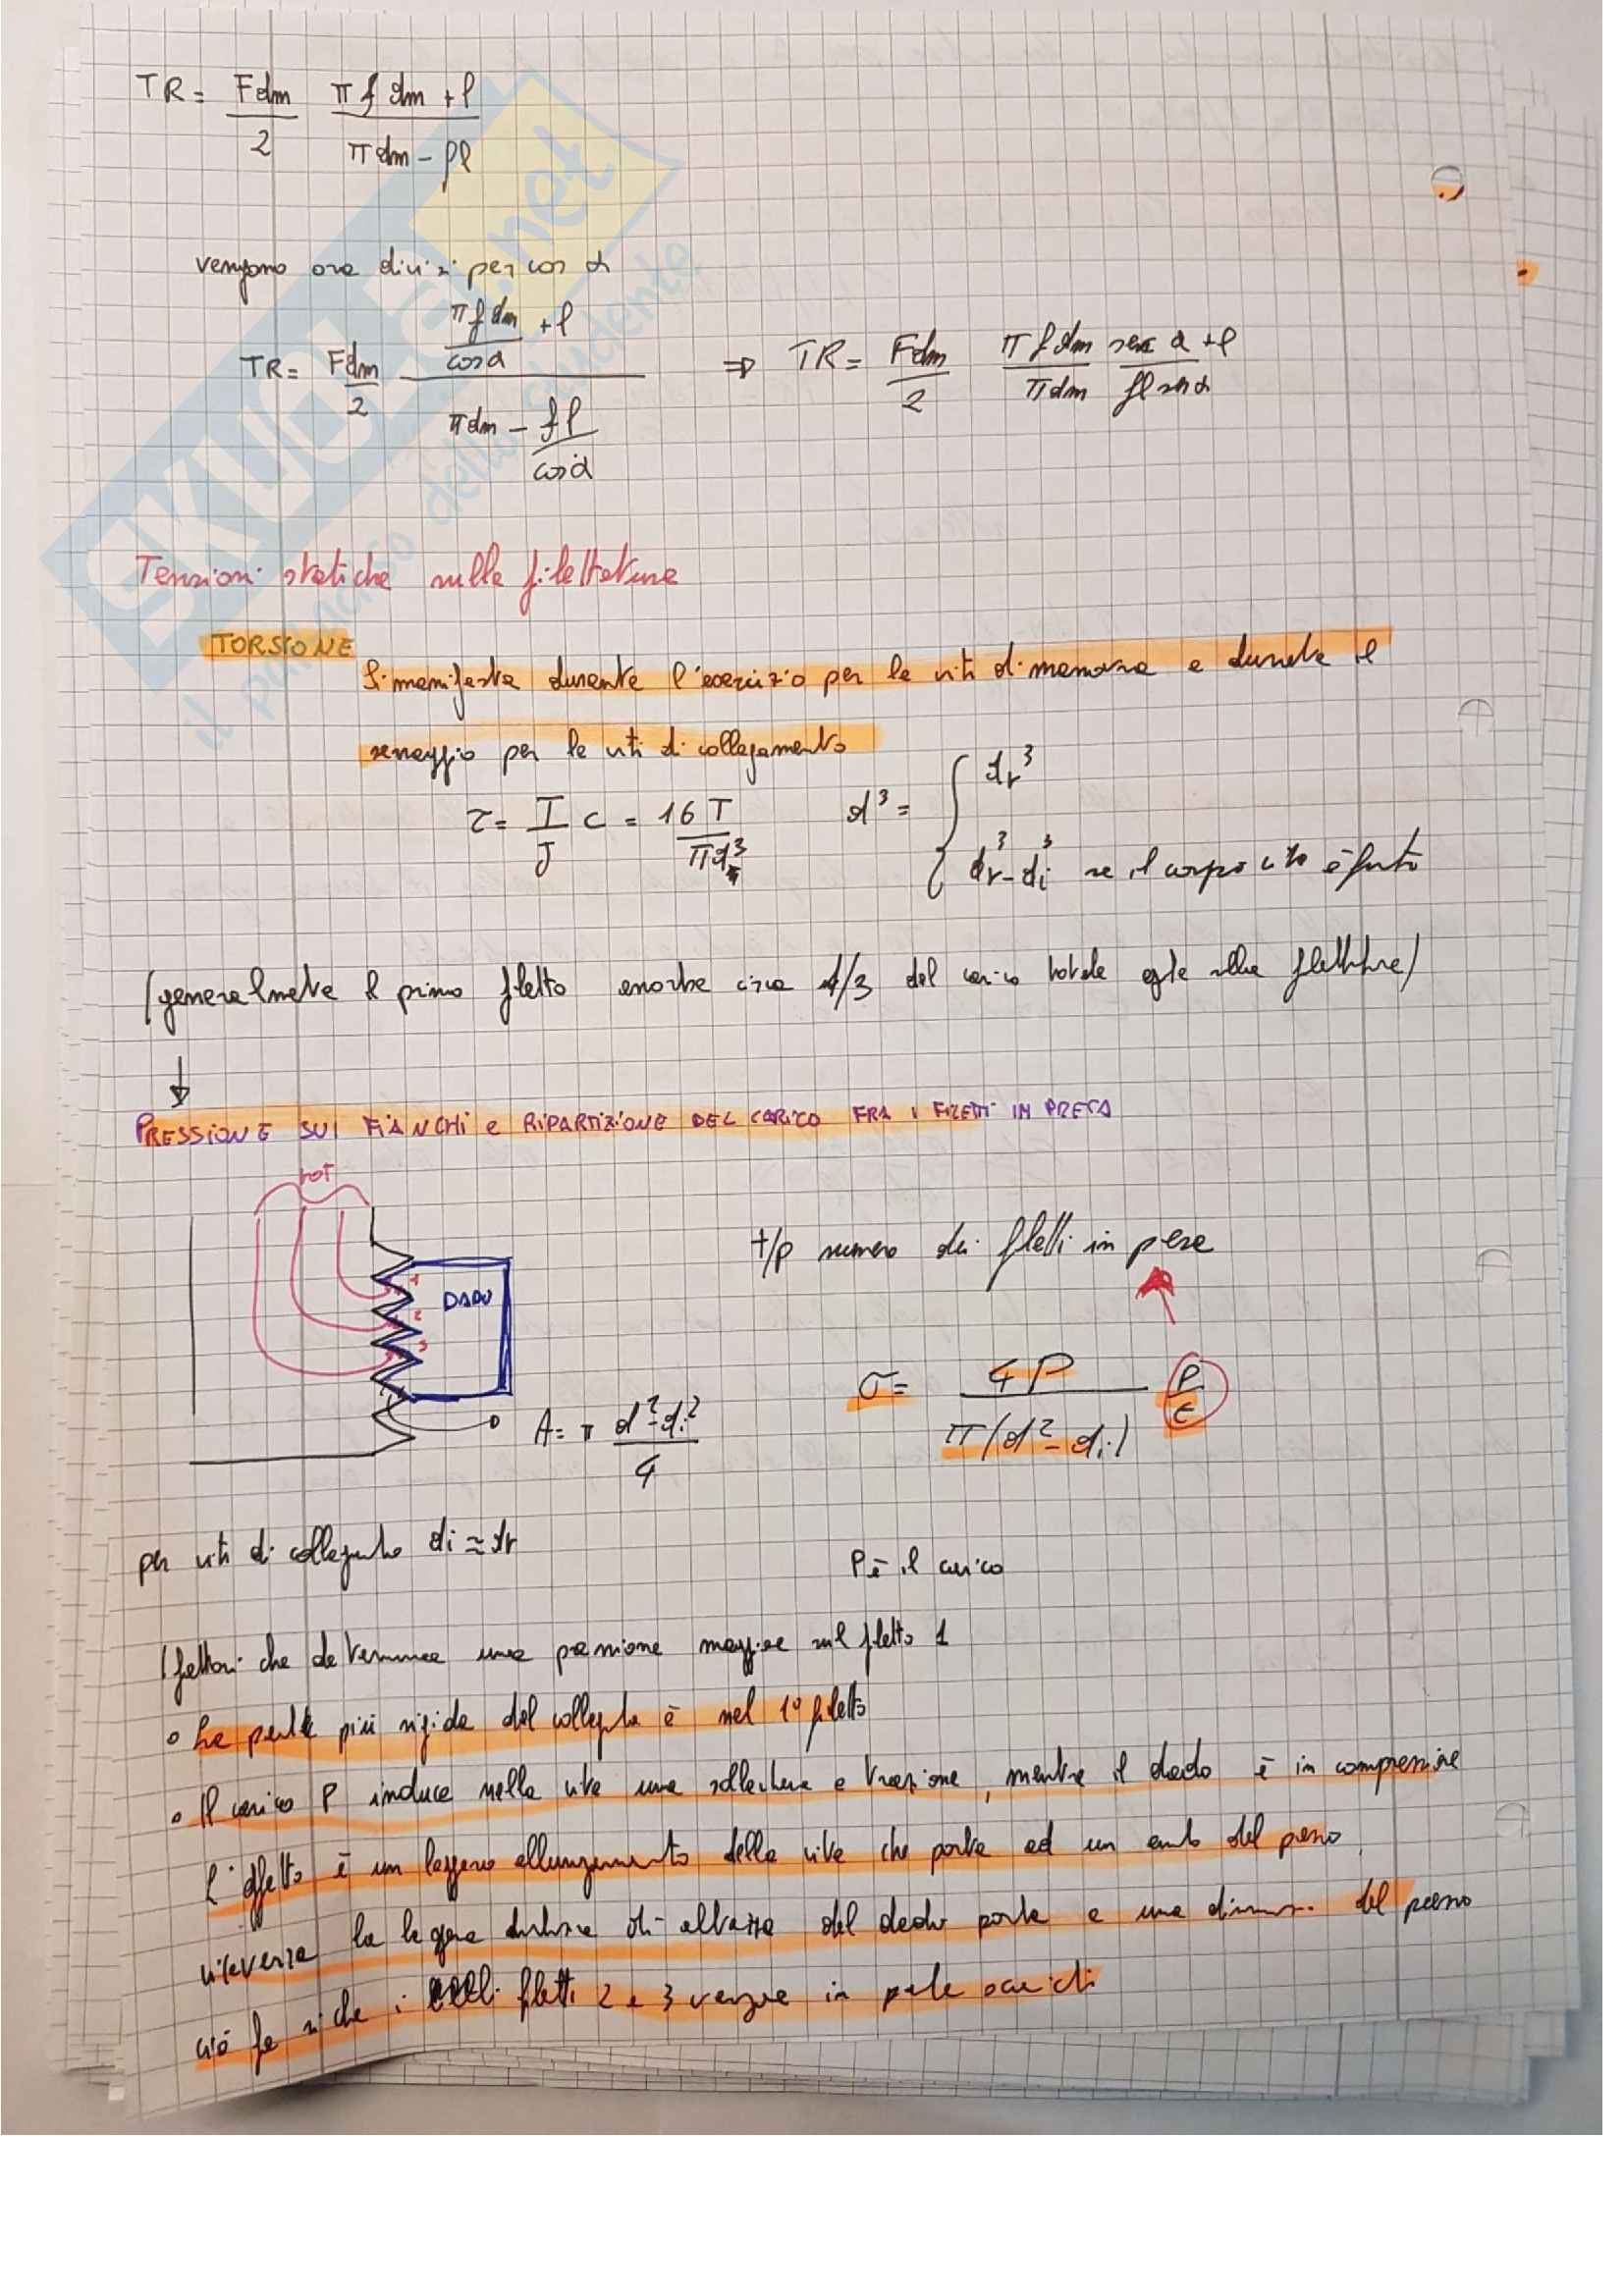 TR = Fdm/2 (π f dm + l)/(π dm - fl)
vengono ora divisi per cos α
TR = Fdm/2 (π f dm/cos α + l)/(π dm - fl/cos α) ⇒ TR = Fdm/2 π f dm sec α + l / π dm fl sec α
Tensioni statiche sulle filettature
TORSIONE
Si manifesta durante l'esercizio per le viti di manovra e durante il
serraggio per le viti di collegamento
τ = T/J c = 16 T/πd³ d³ = { dr³
dr³ - di³ se il corpo vite è forato
(generalmente il primo filetto assorbe circa 1/3 del carico totale agente sulla filettature)
↓
PRESSIONE SUI FIANCHI e RIPARTIZIONE DEL CARICO FRA I FILETTI IN PRESA
t/p numero dei filetti in presa
DADO
1
2
3
σ = 4P/π(d² - di) p/t
A = π (d² - di²)/4
per viti di collegamento di ≃ dr
P è il carico
I fattori che determinano una pressione maggiore sul filetto 1
• La parte più rigida del collegamento è nel 1° filetto
• Il carico P induce nella vite una sollecitazione a trazione, mentre il dado è in compressione
l'effetto è un leggero allungamento della vite che porta ad un aumento del passo,
viceversa la leggera di altezza del dado porta a una diminuz. del passo
ciò fa si che i filetti 2 e 3 vengano in parte scaricati
SKUOLA.net
il paradiso dello studente